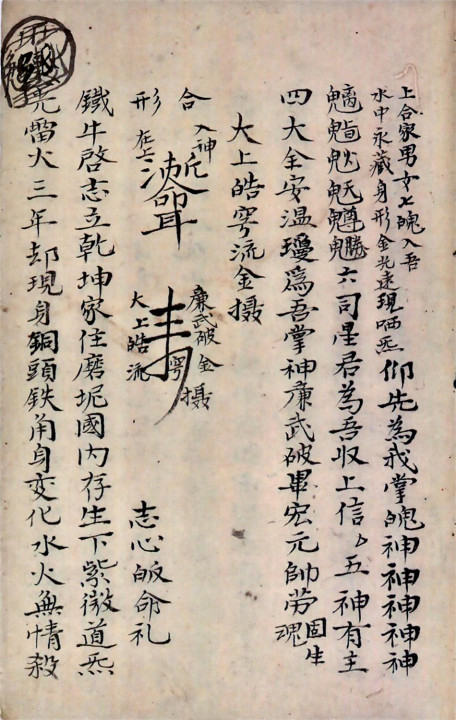 上合家男女七魄入吾
水中永藏身形金光遠現
仰先為我掌魄神神神神神
六司星君為吾収上信五神有主
四大全安温瓊為吾掌神廉武破
宏元帥劳固生魂
大上皓穹流金摄
合形
入神
在上
廉武破金摄
大上皓流
穹
志心皈命礼
鐵牛啓志立乾坤家住磨坭國内存生下紫微道炁
雷火三年却現身銅頭鉄角身变化水火無情殺